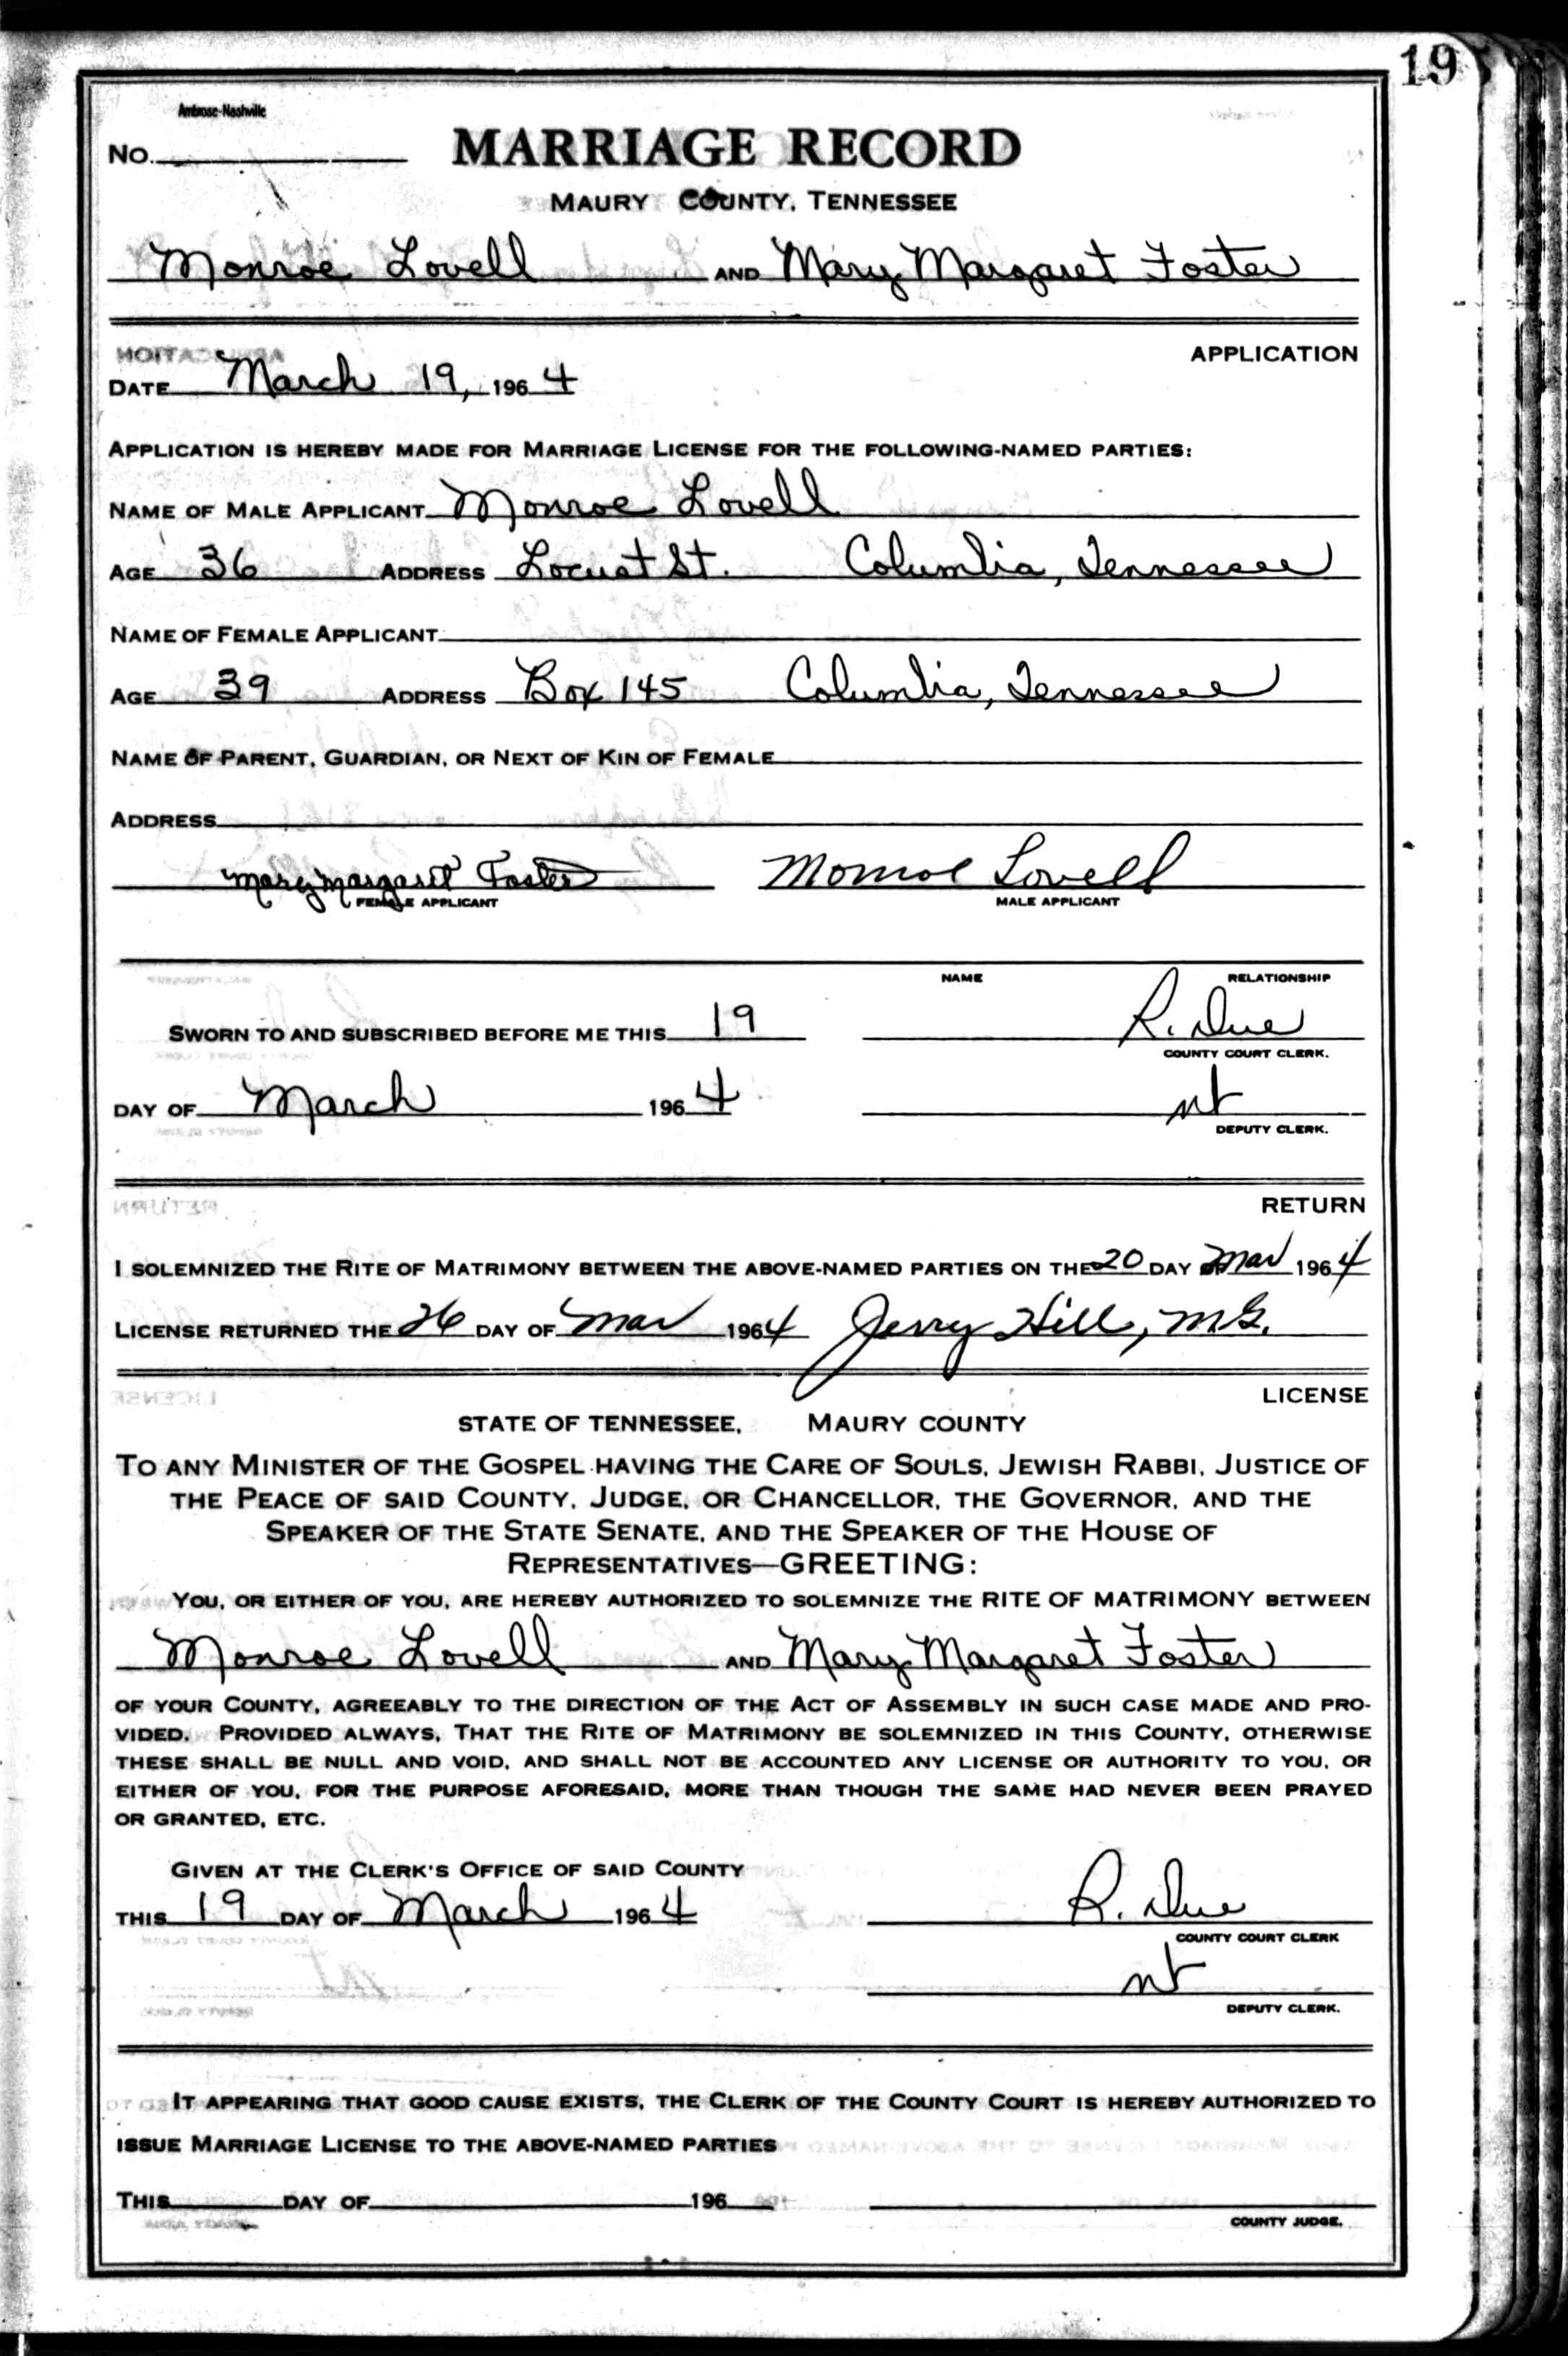 19
Ambrose-Nashville
No. MARRIAGE RECORD
MAURY COUNTY, TENNESSEE
Monroe Lovell AND Mary Margaret Foster
APPLICATION
DATE March 19, 1964
APPLICATION IS HEREBY MADE FOR MARRIAGE LICENSE FOR THE FOLLOWING-NAMED PARTIES:
NAME OF MALE APPLICANT Monroe Lovell
AGE 36 ADDRESS Locust St. Columbia, Tennessee
NAME OF FEMALE APPLICANT
AGE 39 ADDRESS Box 145 Columbia, Tennessee
NAME OF PARENT, GUARDIAN, OR NEXT OF KIN OF FEMALE
ADDRESS
Mary Margaret Foster Monroe Lovell
FEMALE APPLICANT MALE APPLICANT
NAME RELATIONSHIP
SWORN TO AND SUBSCRIBED BEFORE ME THIS 19 R. Due
COUNTY COURT CLERK.
DAY OF March 1964 nt
DEPUTY CLERK.
RETURN
I SOLEMNIZED THE RITE OF MATRIMONY BETWEEN THE ABOVE-NAMED PARTIES ON THE 20 DAY OF Mar 1964
LICENSE RETURNED THE 26 DAY OF Mar 1964 Jerry Hill, M.G.
LICENSE
STATE OF TENNESSEE, MAURY COUNTY
TO ANY MINISTER OF THE GOSPEL HAVING THE CARE OF SOULS, JEWISH RABBI, JUSTICE OF
THE PEACE OF SAID COUNTY, JUDGE, OR CHANCELLOR, THE GOVERNOR, AND THE
SPEAKER OF THE STATE SENATE, AND THE SPEAKER OF THE HOUSE OF
REPRESENTATIVES—GREETING:
YOU, OR EITHER OF YOU, ARE HEREBY AUTHORIZED TO SOLEMNIZE THE RITE OF MATRIMONY BETWEEN
Monroe Lovell AND Mary Margaret Foster
OF YOUR COUNTY, AGREEABLY TO THE DIRECTION OF THE ACT OF ASSEMBLY IN SUCH CASE MADE AND PRO-
VIDED. PROVIDED ALWAYS, THAT THE RITE OF MATRIMONY BE SOLEMNIZED IN THIS COUNTY, OTHERWISE
THESE SHALL BE NULL AND VOID, AND SHALL NOT BE ACCOUNTED ANY LICENSE OR AUTHORITY TO YOU, OR
EITHER OF YOU, FOR THE PURPOSE AFORESAID, MORE THAN THOUGH THE SAME HAD NEVER BEEN PRAYED
OR GRANTED, ETC.
GIVEN AT THE CLERK'S OFFICE OF SAID COUNTY
THIS 19 DAY OF March 1964 R. Due
COUNTY COURT CLERK
nt
DEPUTY CLERK.
IT APPEARING THAT GOOD CAUSE EXISTS, THE CLERK OF THE COUNTY COURT IS HEREBY AUTHORIZED TO
ISSUE MARRIAGE LICENSE TO THE ABOVE-NAMED PARTIES
THIS DAY OF 196
COUNTY JUDGE.